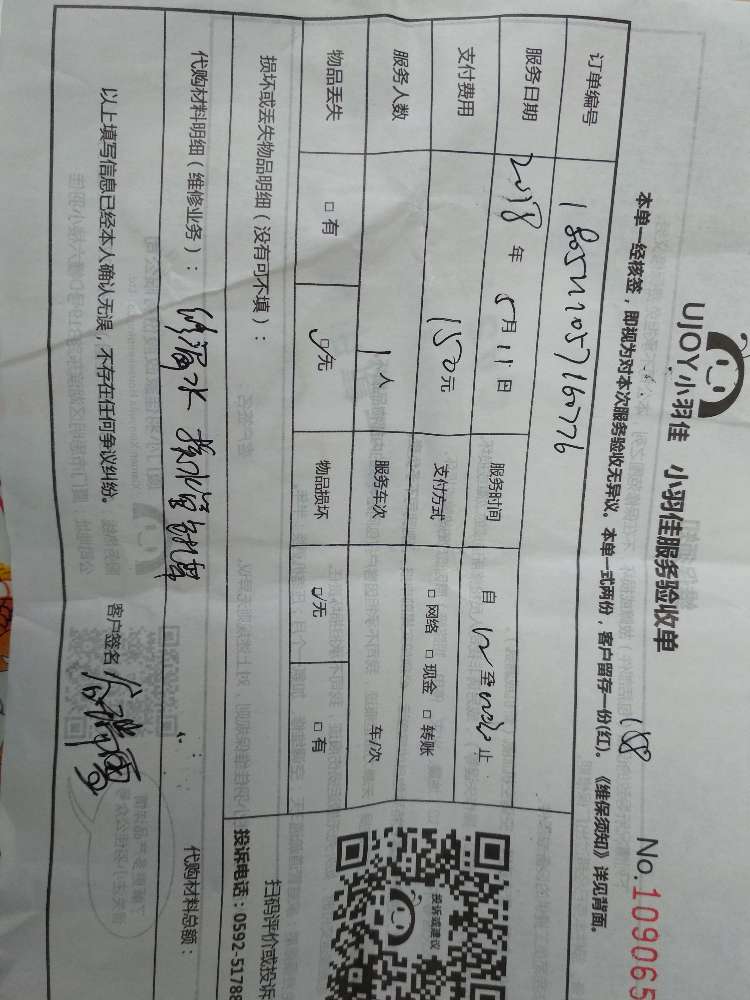 UJOY小羽佳 小羽佳服务验收单
No.109065
本单一经核签，即视为对本次服务验收无异议。本单一式两份，客户留存一份(红)。《维保须知》详见背面。
订单编号
服务日期 2018 年 5 月 11 日 服务时间 自 至 止
支付费用 150 元 支付方式 □ 网络 □ 现金 □ 转账
服务人数 1 人 服务车次 车/次
物品丢失 □ 有 ☑ 无 物品损坏 ☑ 无 □ 有
损坏或丢失物品明细（没有可不填）：
代购材料明细（维修业务）： 修漏水 代购材料总额：
以上填写信息已经本人确认无误，不存在任何争议纠纷。 客户签名
投诉或建议
扫码评价或投诉
投诉电话：0592-5178